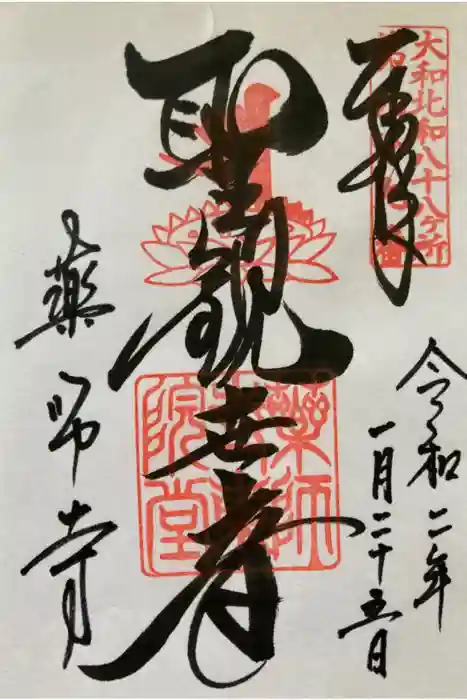 奉拝
大和北和八十八ケ所
令和二年
一月二十五日
聖観世音
薬師寺